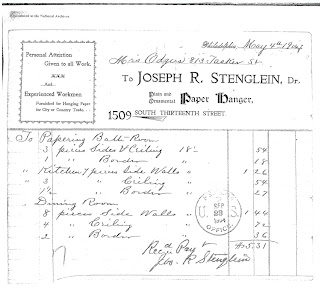 Reproduced at the National Archives
Philadelphia, May 4th 190
Personal Attention
Given to all Work.
And
Experienced Workmen
Furnished for Hanging Paper
for City or Country Trade.
Mrs Odgers 213 Tasker St
To JOSEPH R. STENGLEIN, Dr.
Plain and
Ornamental
Paper Hanger,
1509 SOUTH THIRTEENTH STREET.
To Papering Bath Room
3 pieces Sides & Ceiling 18c 54
1 " Border " 18
" Kitchen 7 pieces Side Walls " 1 26
" 3 " Ceiling " 54
1½ " Border " 27
" Dining Room
8 pieces Side Walls " 1 44
4 " Ceiling " 72
2 " Border " 36
$5.31
Rec'd Payt
Jos. R Stenglein
U. S.
SEP
23
OFFICE